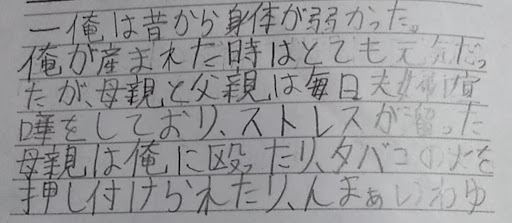 一俺は昔から身体が弱かった。
俺が産まれた時はとても元気だっ
たが、母親と父親は毎日夫婦喧
嘩をしており、ストレスが溜った
母親は俺に殴ったり、タバコの火を
押し付けられたり、んまぁいわゆ